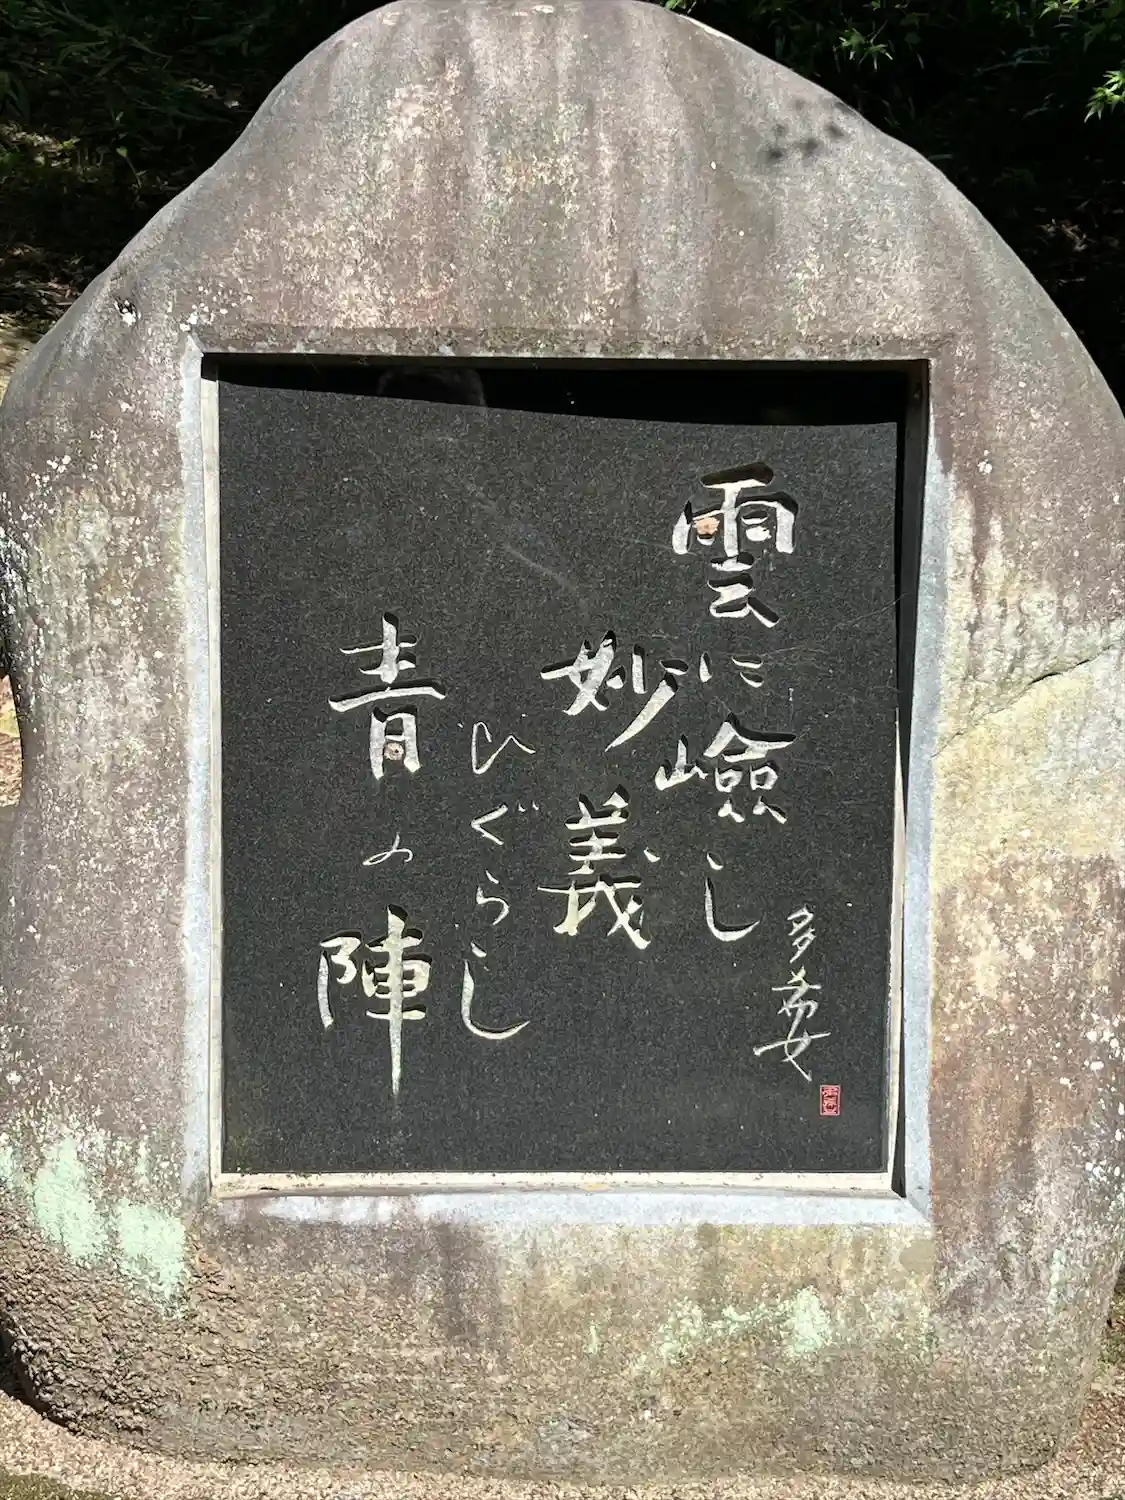 多希女
雲に嶮し
妙義
ひぐらし
青の陣